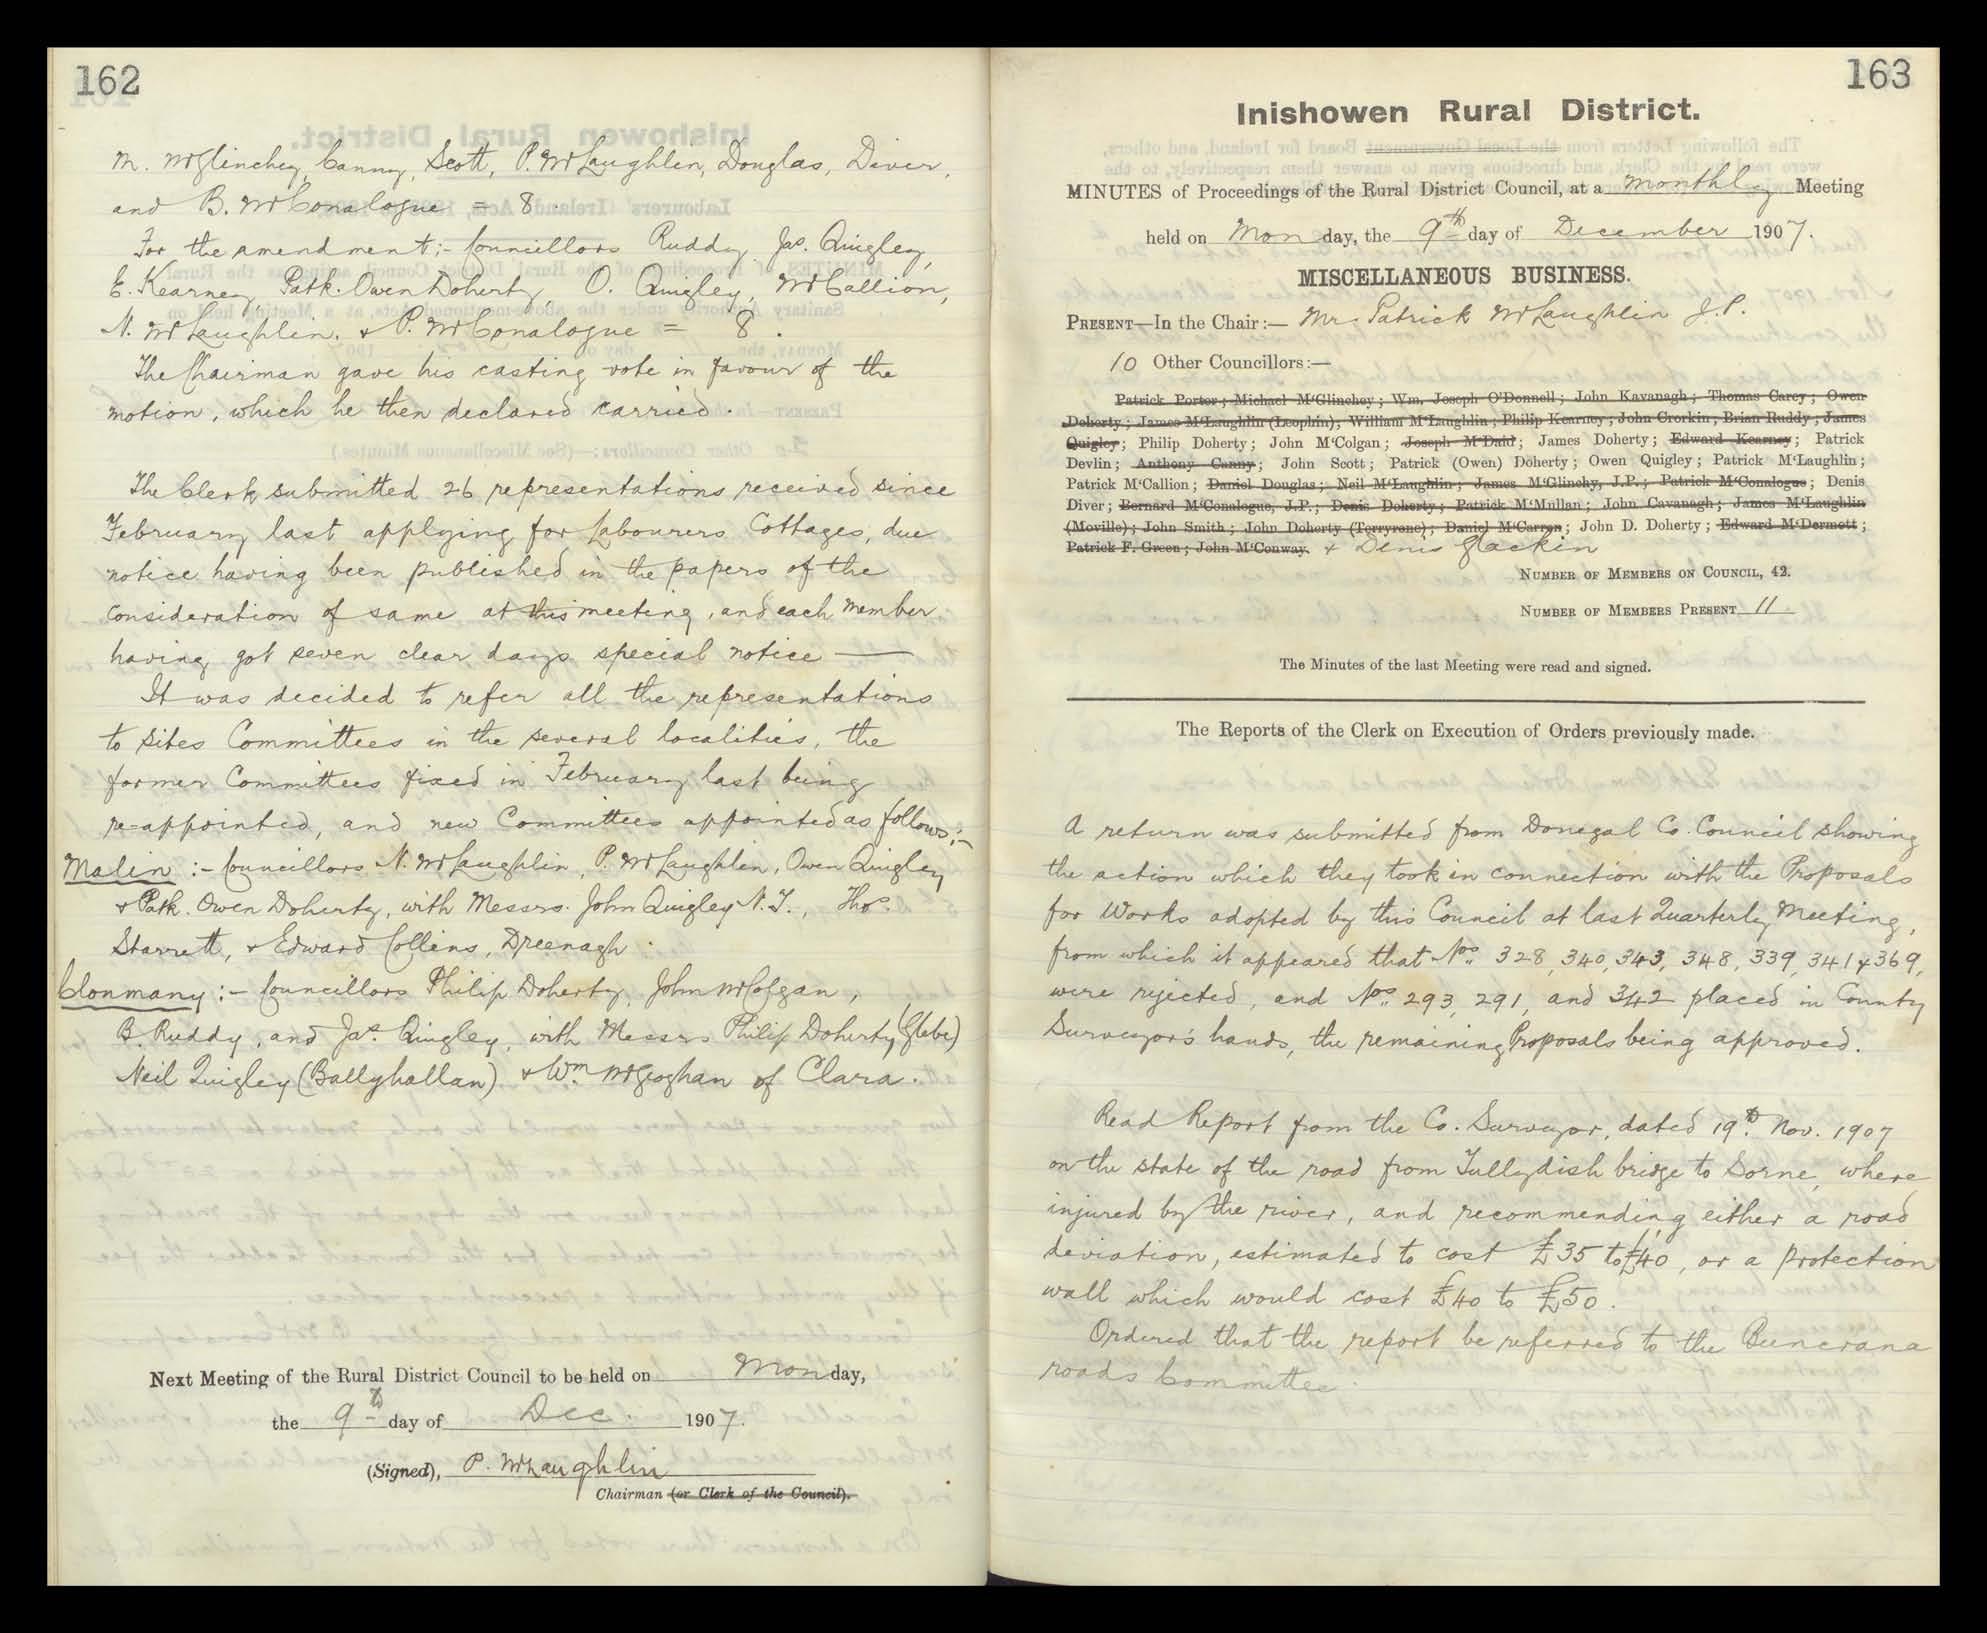 162
M. McGlinchey, Canny, Scott, P. McLaughlin, Douglas, Diver,
and B. McConalogue = 8.
For the amendment:- Councillors Ruddy, Jas. Quigley,
E. Kearney, Patk. Owen Doherty, O. Quigley, McCallion,
N. McLaughlin, & P. McConalogue = 8.
The Chairman gave his casting vote in favour of the
motion, which he then declared carried.
The Clerk submitted 26 representations received since
February last applying for Labourers Cottages, due
notice having been published in the papers of the
consideration of same at this meeting, and each member
having got seven clear days special notice —
It was decided to refer all the representations
to sites Committees in the several localities, the
former Committees fixed in February last being
re-appointed, and new Committees appointed as follows:-
Malin :- Councillors N. McLaughlin, P. McLaughlin, Owen Quigley
& Patk. Owen Doherty, with Messrs. John Quigley N.T., Thos.
Starrett, & Edward Collins, Dreenagh.
Clonmany :- Councillors Philip Doherty, John McColgan,
B. Ruddy, and Jas. Quigley, with Messrs Philip Doherty (Glebe)
Neil Quigley (Ballyhallan) & Wm McGeoghan of Clara.
Next Meeting of the Rural District Council to be held on Monday,
the 9th day of Dec. 1907.
(Signed), P. McLaughlin
Chairman (or Clerk of the Council).
163
Inishowen Rural District.
MINUTES of Proceedings of the Rural District Council, at a monthly Meeting
held on Monday, the 9th day of December 1907.
MISCELLANEOUS BUSINESS.
PRESENT—In the Chair:— Mr. Patrick McLaughlin J.P.
10 Other Councillors:—
Patrick Porter; Michael M'Glinchey; Wm. Joseph O'Donnell; John Kavanagh; Thomas Carey; Owen
Doherty; James M'Laughlin (Leophin); William M'Laughlin; Philip Kearney; John Crorkin; Brian Ruddy; James
Quigley; Philip Doherty; John M'Colgan; Joseph M'Daid; James Doherty; Edward Kearney; Patrick
Devlin; Anthony Canny; John Scott; Patrick (Owen) Doherty; Owen Quigley; Patrick M'Laughlin;
Patrick M'Callion; Daniel Douglas; Neil M'Laughlin; James M'Glinchy, J.P.; Patrick M'Conalogue; Denis
Diver; Bernard M'Conalogue, J.P.; Denis Doherty; Patrick M'Mullan; John Cavanagh; James M'Laughlin
(Moville); John Smith; John Doherty (Terryrone); Daniel M'Carron; John D. Doherty; Edward M'Dermott;
Patrick F. Green; John M'Conway. & Denis Glackin
NUMBER OF MEMBERS ON COUNCIL, 42.
NUMBER OF MEMBERS PRESENT 11.
The Minutes of the last Meeting were read and signed.
The Reports of the Clerk on Execution of Orders previously made.
A return was submitted from Donegal Co. Council showing
the action which they took in connection with the Proposals
for Works adopted by this Council at last Quarterly Meeting,
from which it appeared that Nos. 328, 340, 343, 348, 339, 341 & 369,
were rejected, and Nos. 293, 291, and 342 placed in County
Surveyor's hands, the remaining Proposals being approved.
Read Report from the Co. Surveyor, dated 19th Nov. 1907
on the state of the road from Tullydish bridge to Sorne, where
injured by the river, and recommending either a road
deviation, estimated to cost £35 to £40, or a protection
wall which would cost £40 to £50.
Ordered that the report be referred to the Buncrana
roads Committee.